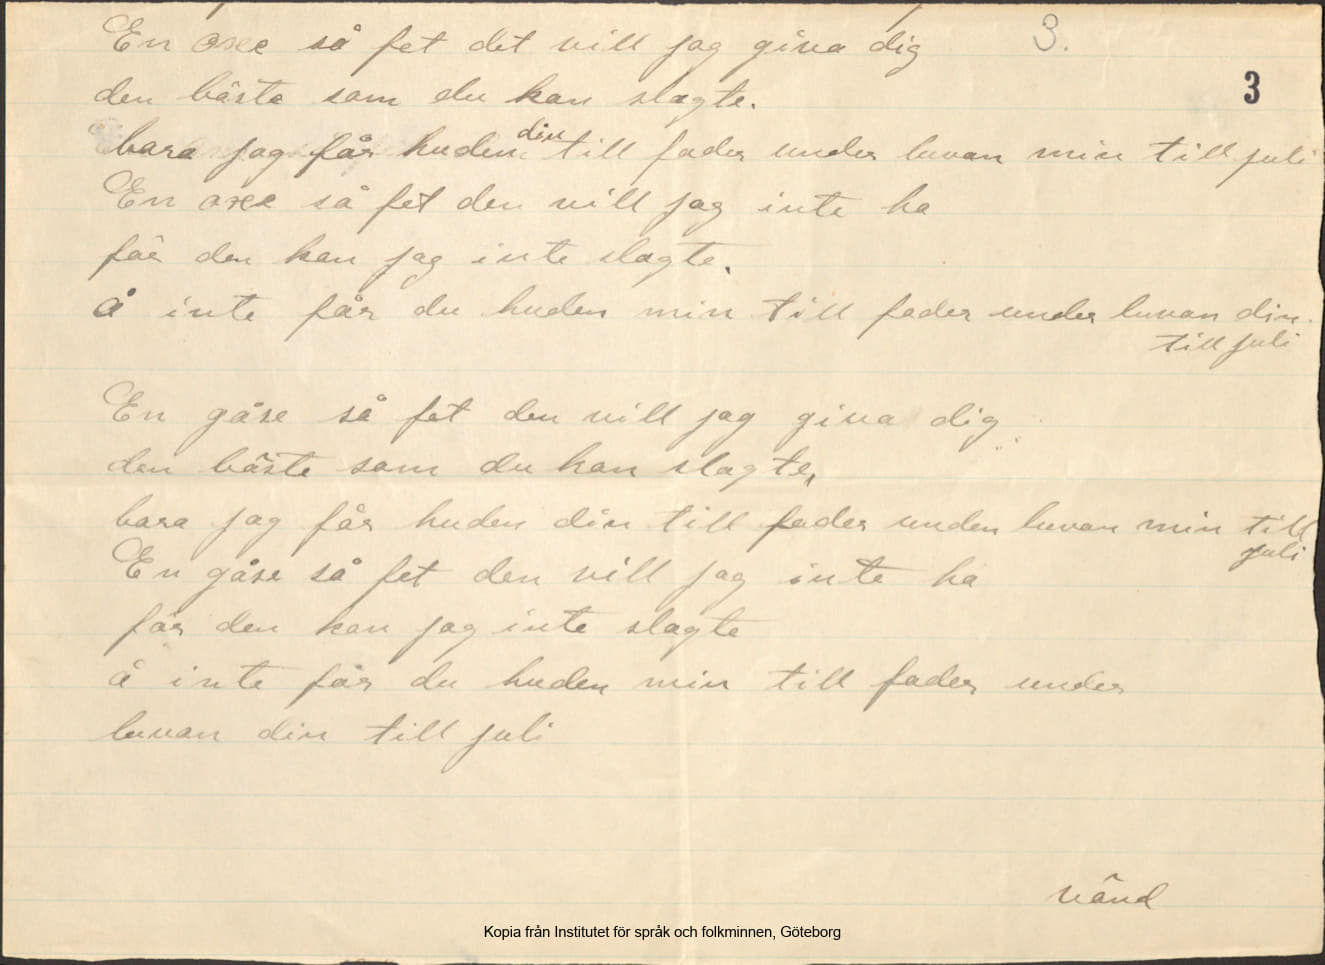 En oxe så fet det vill jag giva dig 3.
3
den bäste som du kan slagte.
bara jag får huden din till foder under luvan min till juli
En oxe så fet den vill jag inte ha
för den kan jag inte slagte.
Å inte får du huden min till foder under luvan din.
till juli
En gåse så fet den vill jag giva dig
den bäste som du kan slagte,
bara jag får huden din till foder under luvan min till
juli
En gåse så fet den vill jag inte ha
för den kan jag inte slagte
å inte får du huden min till foder under
luvan din till juli
vänd
Kopia från Institutet för språk och folkminnen, Göteborg